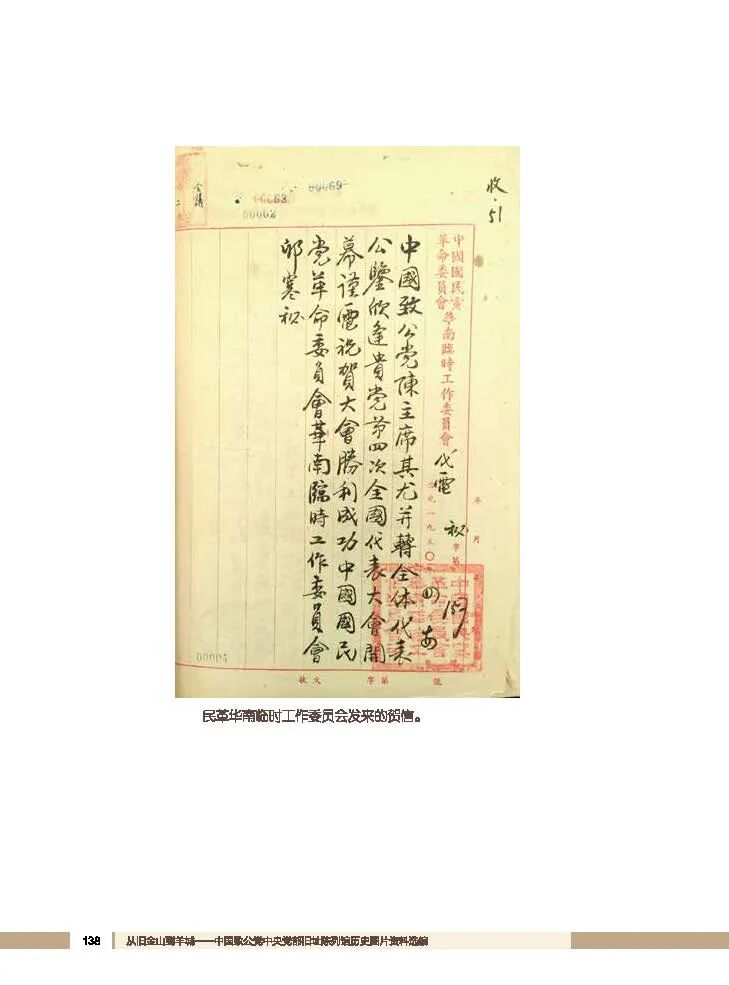 收·51
会議
00069
00063
00062
中國國民黨
革命委員會華南臨時工作委員會 代電
秘字第
公元一九五〇年
年 月
中國致公党陳主席其尤并轉全体代表
公鑒欣逢貴党第四次全國代表大會開
幕謹電祝賀大會勝利成功中國國民
党革命委員會華南臨時工作委員會
卯寒秘
收文 字第 號
民革华南临时工作委员会发来的贺信。
138 从旧金山到羊城——中国致公党中央党部旧址陈列馆历史图片资料选编